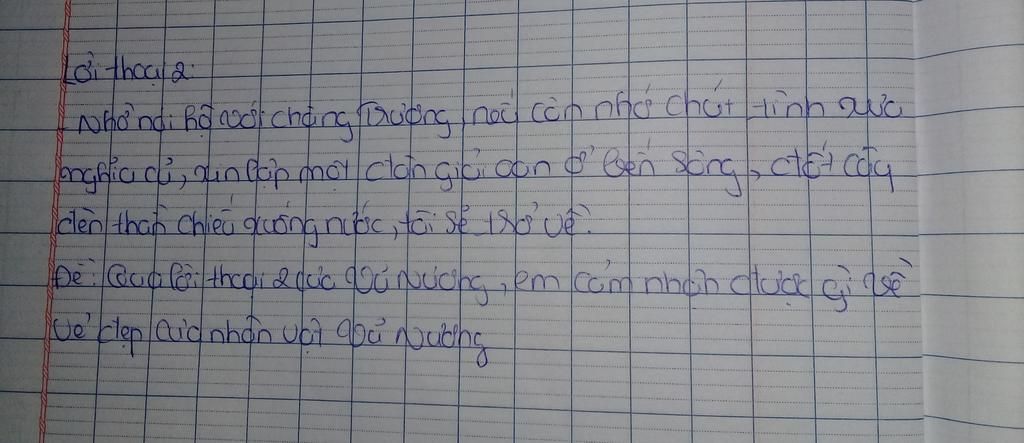 Lời thoại 2:
- Nhờ nói hộ với chàng Trương, nếu còn nhớ chút tình xưa
nghĩa cũ, xin lập một đàn giải oan ở bến sông, đốt cây
đèn thần chiếu xuống nước, tôi sẽ trở về.
Đề: Qua lời thoại 2 của Vũ Nương, em cảm nhận được gì về
vẻ đẹp của nhân vật Vũ Nương